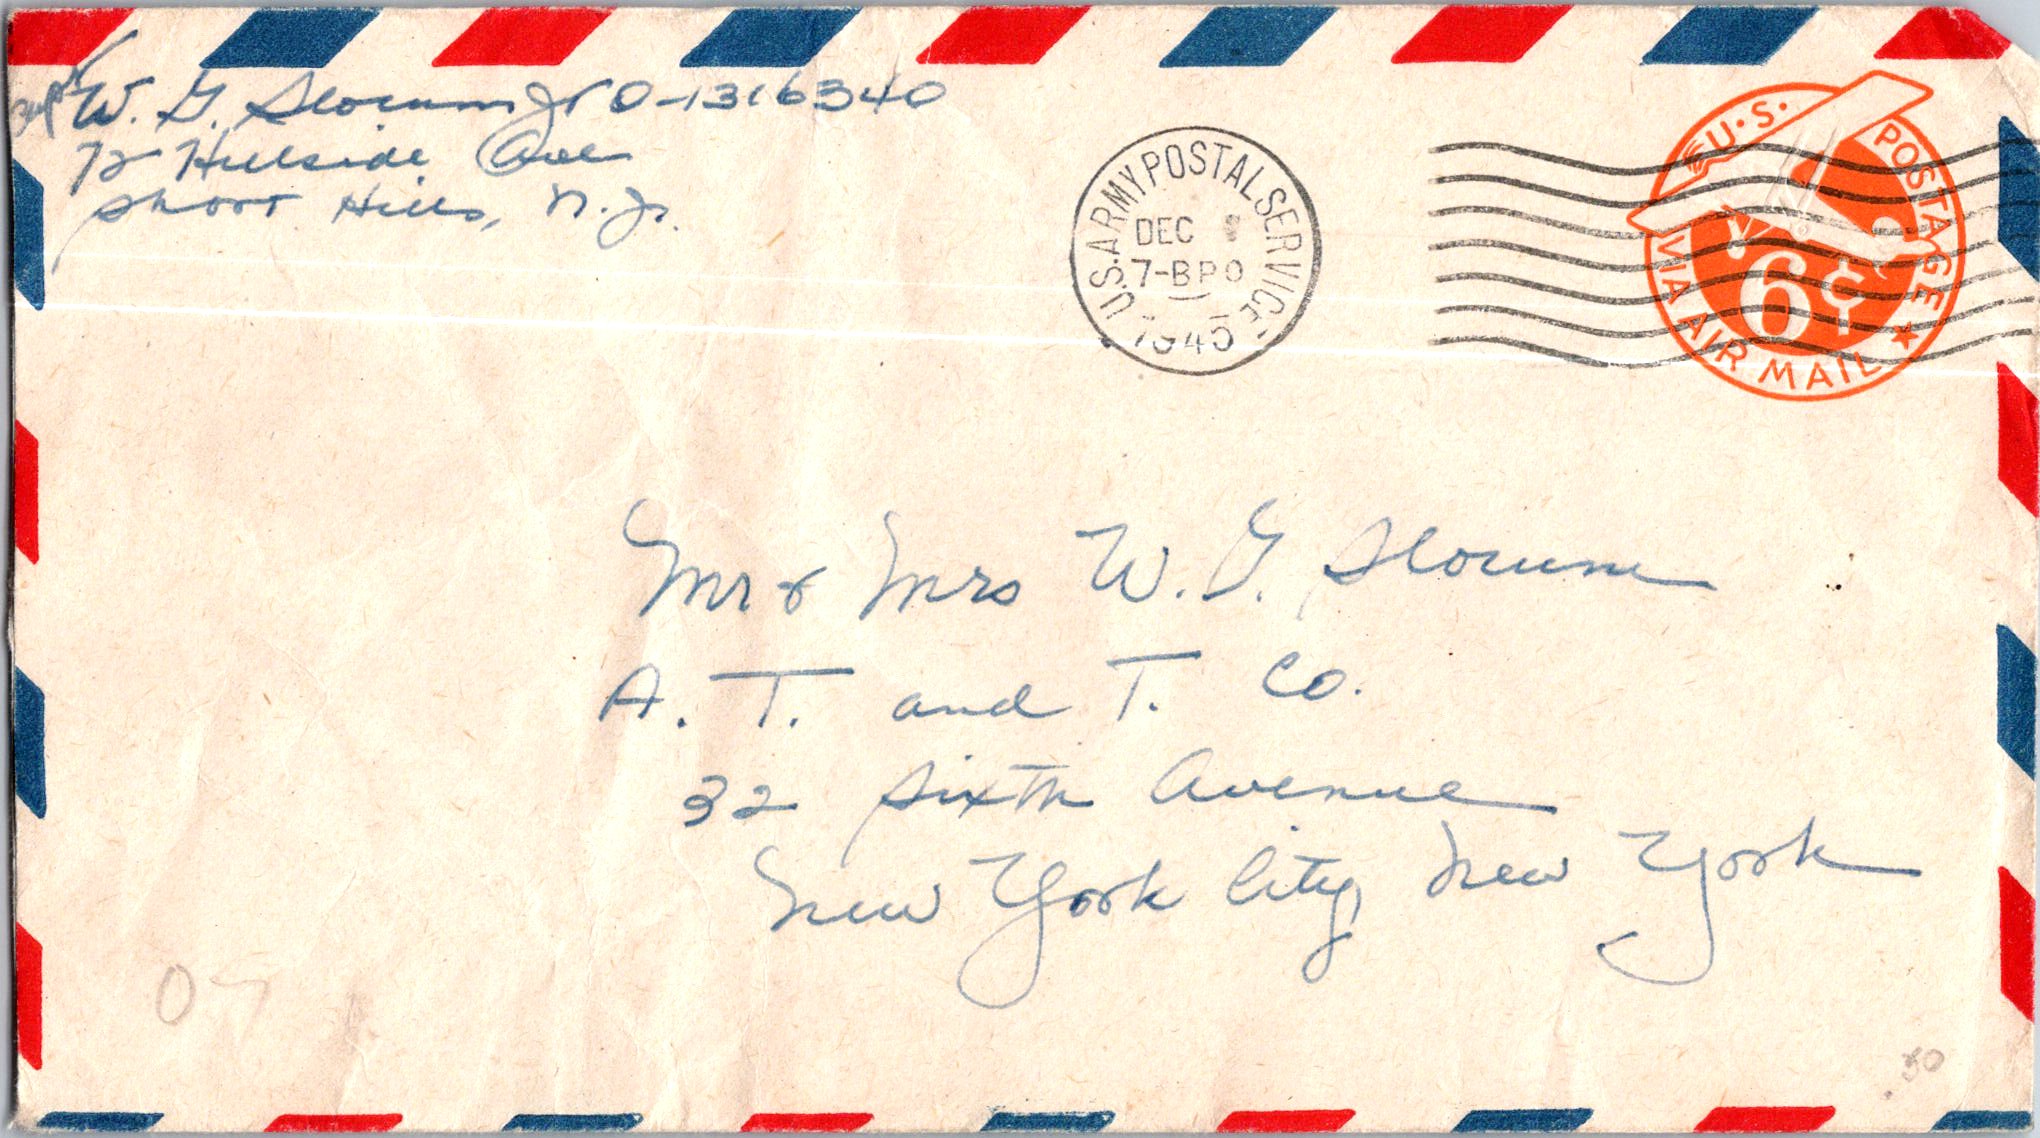 Capt W. G. Slocum Jr O-1316340
72 Hillside Ave
Short Hills, N.J.
U.S. ARMY POSTAL SERVICE
DEC
7-BPO
1945
U.S. POSTAGE
6¢
VIA AIR MAIL
Mr & Mrs W. G. Slocum
A. T. and T. Co.
32 Sixth Avenue
New York City, New York
50